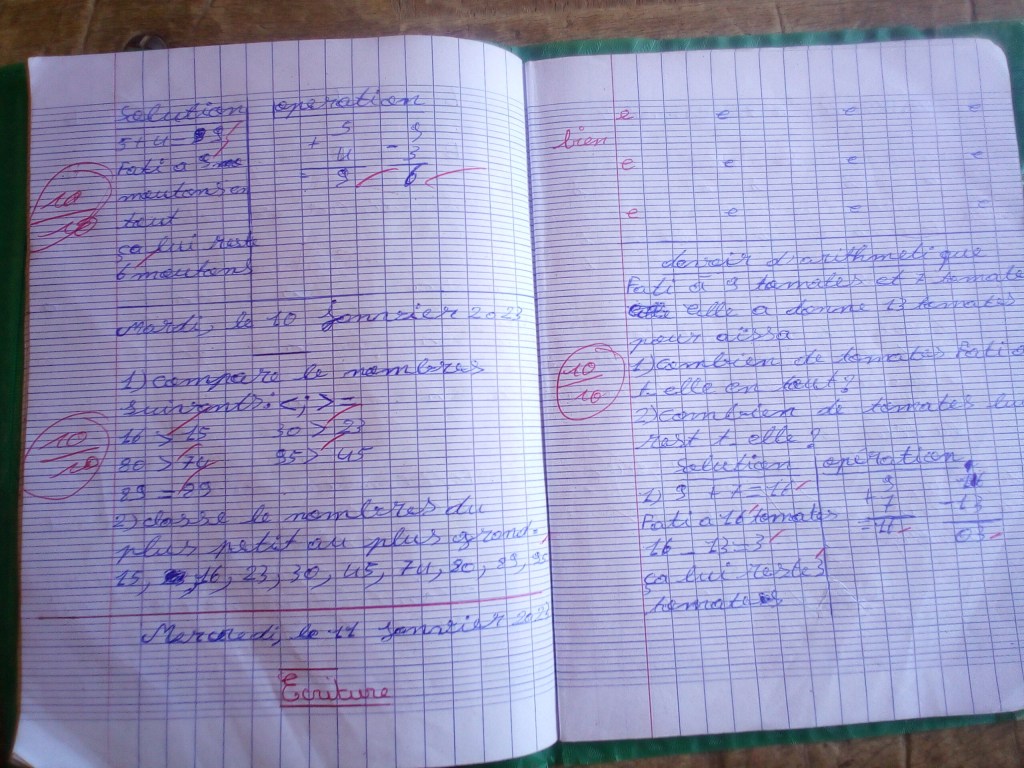 Solution opération
5+4=9
+ 5 - 9
Fati a 9
4 3
9 6
moutons en
10
10
tout
ça lui reste
6 moutons
Mardi, le 10 Janvier 2023
1) compare le nombres
suivants: < ; > =
16 > 15 30 > 23
10
10
80 > 74 95 > 45
89 = 89
2) classe le nombres du
plus petit au plus grand.
15, 16, 23, 30, 45, 74, 80, 89, 95
Mercredi, le 11 Janvier 2023
Ecriture
e e e e
bien
e e e e
e e e e
devoir d'arithmetique
Fati à 9 tomates et 7 tomate
elle a donne 13 tomates
pour aïssa
1) Combien de tomates Fati a
t elle en tout?
10
10
2) Combien de tomates lui
rest t elle?
Solution opération
1) 9 + 7 = 16
9
+ 7 - 13
Fati a 16 tomates
= 16 03
16 - 13 = 3
ça lui reste 3
tomates